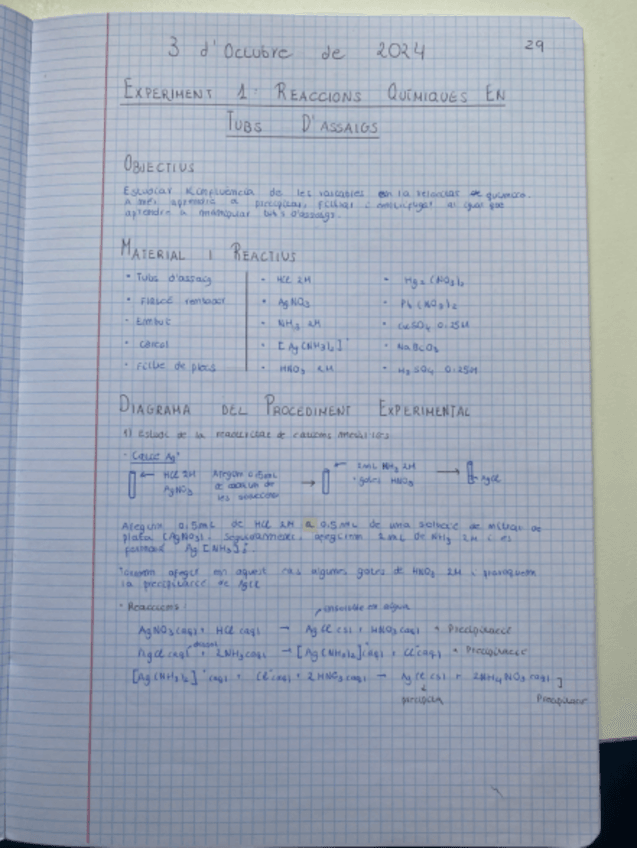 29
3 d'Octubre de 2024
EXPERIMENT 1: REACCIONS QUÍMIQUES EN
TUBS D'ASSAIGS
OBJECTIUS
Estudiar influència de les variables en la química.
A més aprendre a precipitar, filtrar i centrifugar al igual que
aprendre a manipular tubs d'assaigs.
MATERIAL I REACTIUS
• Tubs d'assaig • HCl 2M • Hg2(NO3)2
• Flascó rentador • AgNO3 • Pb(NO3)2
• Embut • NH3 2M • CuSO4 0.25M
• [Ag(NH3)2]+
• Filtre de plecs • HNO3 2M • H2SO4 0.25M
DIAGRAMA DEL PROCEDIMENT EXPERIMENTAL
1) Estudi de la reactivitat de cations
• Catió Ag+
← HCl 2M Afegim 0.5mL → ← 2mL NH3 2M → AgCl
AgNO3 de cadascun de • gotes HNO3
les
Afegim 0.5mL de HCl 2M a 0.5mL de una de nitrat de
plata (AgNO3). Seguidament, afegim 2mL de NH3 2M i es
Ag[NH3]2+
afegir en aquest cas algunes gotes de HNO3 2M i
la precipitació de AgCl
• Reaccions: insoluble en aigua
AgNO3(aq) + HCl(aq) → AgCl(s) + HNO3(aq) • Precipitació
+ 2NH3(aq) → [Ag(NH3)2]+(aq) + Cl-(aq) • Precipitació
[Ag(NH3)2]+(aq) + Cl-(aq) + 2HNO3(aq) → AgCl(s) + 2NH4NO3(aq) ]
precipita Precipitació